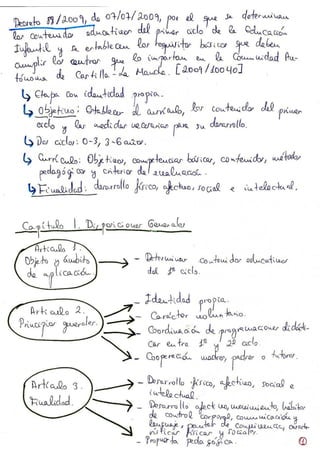 Decreto 88/2009, de 07/07/2009, por el que se determinan
los contenidos educativos del primer ciclo de la Educación
Infantil y se establecen los requisitos básicos que deben
cumplir los centros que lo impartan en la Comunidad Au-
tónoma de Castilla-La Mancha. [2009/10040]
↳ Etapa con identidad propia.
↳ Objetivo: Establecer el currículo, los contenidos del primer
ciclo y las medidas necesarias para su desarrollo.
↳ Dos ciclos: 0-3, 3-6 años.
↳ Currículo: Objetivos, competencias básicas, contenidos, métodos
pedagógicos y criterios de evaluación.
↳ Finalidad: desarrollo físico, afectivo, social e intelectual.
Capítulo 1. Disposiciones Generales
Artículo 1.
Objeto y ámbito
de aplicación
- Determinar contenidos educativos
del 1er ciclo.
Artículo 2.
Principios generales.
- Identidad propia.
- Carácter voluntario.
- Coordinación de programaciones didácti-
cas entre 1º y 2º ciclo
- Cooperación madres, padres o tutores.
Artículo 3.
Finalidad.
- Desarrollo físico, afectivo, social e
intelectual.
- Desarrollo afectivo, movimiento, hábitos
de control corporal, comunicación y
lenguaje, pautas de convivencia,
físicas y sociales.
- Propuesta pedagógica.
1